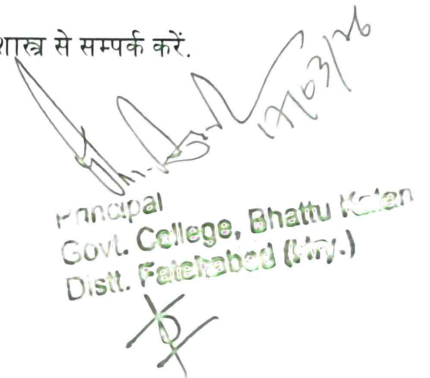 शास्त्र से सम्पर्क करें.
17/03/26
Principal
Govt. College, Bhattu Kalan
Distt. Fatehabad (Hry.)